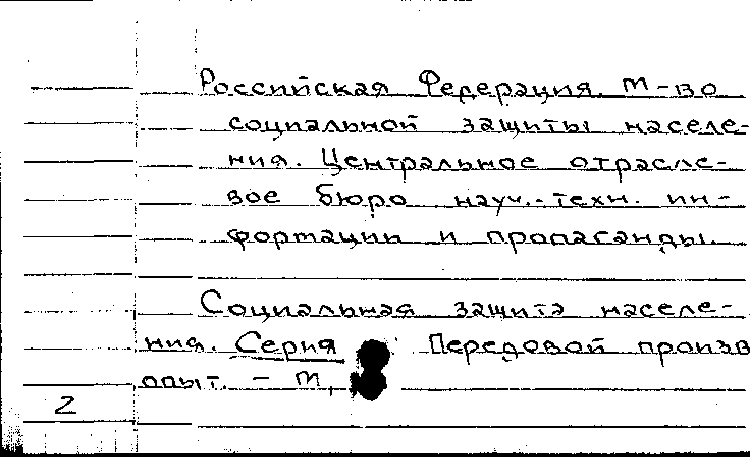 Российская Федерация. М-во
социальной защиты населе-
ния. Центральное отрасле-
вое бюро науч.-техн. ин-
формации и пропаганды.
Социальная защита населе-
ния. Серия Передовой произв
опыт. - М.,
2